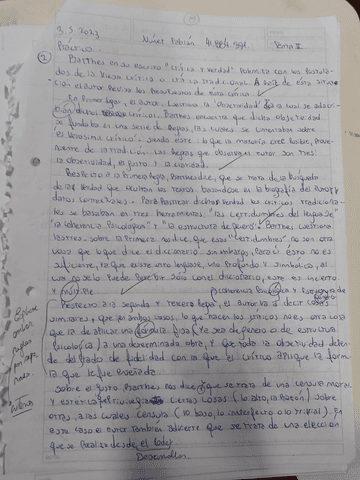 3.5.2023
Núñez Fabián
Tema II
Práctico
②
Barthes en su escrito "crítica y verdad" Polemiza con los Postula-
dos de la vieja crítica o crítica tradicional. A raíz de esta situa-
ción el autor Revisa los Presupuestos de esta crítica.
En Primer lugar, el autor cuestiona la "objetividad" a la cual se adscri-
bían dichos críticos. Barthes encuentra que dicha objetividad
se fundaba en una serie de Reglas, las cuales se cimentaban sobre
el verosímil crítico. siendo este lo que la mayoría cree Posible, Prove-
niente de la tradición. Las Reglas que observa el autor son tres
la objetividad, el gusto y la claridad.
Respecto a la Primera Regla, Barthes dice, que se trata de la búsqueda
de la verdad que los textos basándose en la biografía del autor y
datos contextuales. Para dicha verdad los críticos tradiciona-
les se basaban en tres herramientas. "Las certidumbres del lenguaje"
"la coherencia Psicológica" y "la estructura de género". Barthes cuestiona
estas tres. sobre la primera nos dice, que esas "certidumbres" no son otra
cosa que lo que dice el diccionario sin embargo, Para él esto no es
suficiente, ya que existe otro lenguaje, más Profundo y simbólico y el
cual no se lo Puede Percibir sólo con el diccionario, este es incierto
y
Psicológica y Estructura de género
Respecto a la segunda y tercera Regla, el autor va a decir cosas
similares, que en ambos casos, lo que hacen los críticos no es otra cosa
que la de aplicar una fórmula fija (ya sea de género o de estructura
Psicológica) a una determinada obra, y que toda la objetividad depen-
de del grado de fidelidad con la que el crítico aplique la forma
que le fue enseñada.
Sobre el gusto, Barthes nos dice que se trata de una censura moral
y estética que Privilegia ciertas cosas (lo alto, la Razón) sobre
otras, a las cuales censura (lo bajo, lo imperfecto o lo trivial). En
este caso el autor también advierte que se trata de una elección
que se Realiza desde el
Desarrollar.